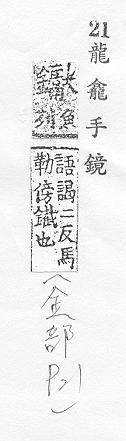 21 龍龕手鏡
魚
列
語謁二反馬
勒傍鐵也
(金部 P21)